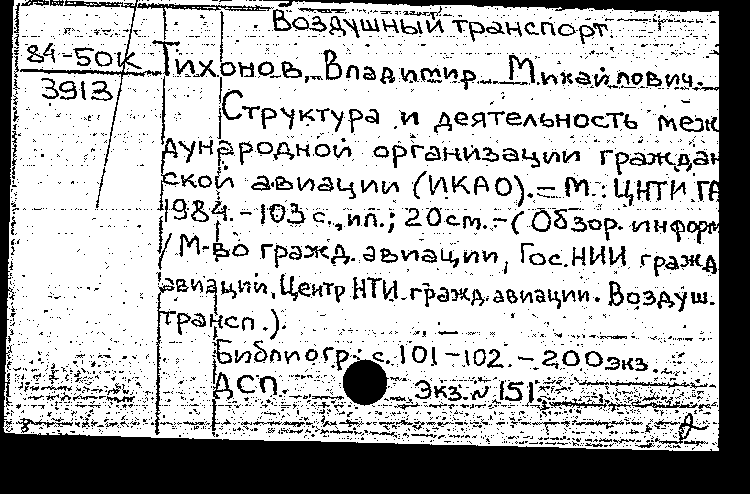 Воздушный транспорт.
84-50К
3913
Тихонов, Владимир Михайлович.
Структура и деятельность меж
дународной организации граждан
ской авиации (ИКАО). — М.: ЦНТИ ГА
1984. - 103 с., ил.; 20 см. - (Обзор. информ
/ М-во гражд. авиации, Гос.НИИ гражд
авиации, Центр НТИ гражд. авиации. Воздуш.
трансп.).
Библиогр: с. 101-102. - 200 экз.
ДСП. Экз. № 151.